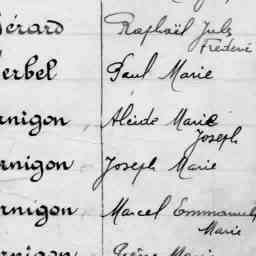 érard Raphaël Jules
Frédéric
erbel Paul Marie
rnigon Alcide Marie
Joseph
rnigon Joseph Marie
rnigon Marcel Emmanuel
Marie
rnigon Marie